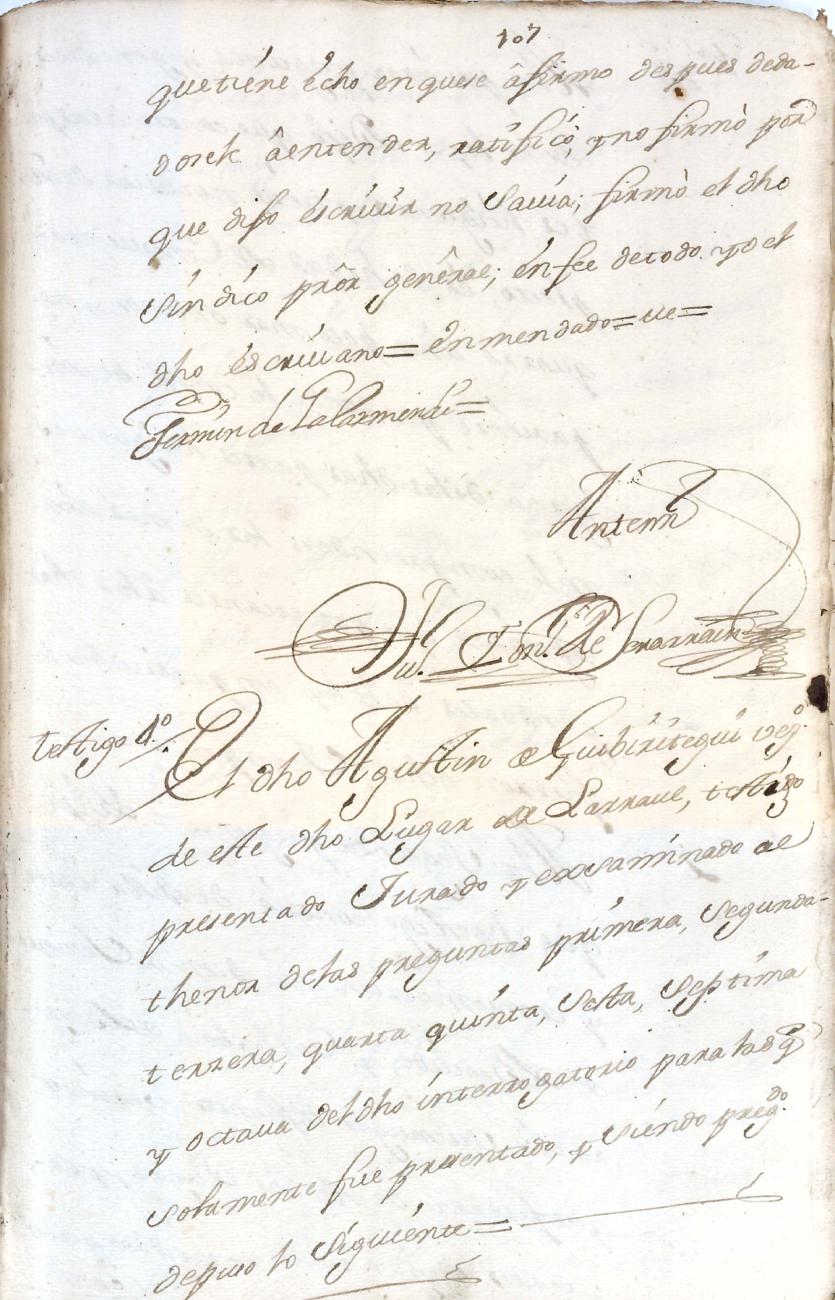 107
que tiene echo en que se âfirmo despues deda-
dosele âentender, ratificó, y no firmò por
que dijo escriuir no Sauia; firmò el dho
Sindico prôr genêrae; en fee detodo yo el
dho escriuano= enmendado= ue=
Fermin de Galarmendi=
Antemi
Ju.º Ton.º de Senarrain
testigo 4.º
El dho Agustin de Guibiritegui vez.º
de este dho Lugar de Larraul, testigo
presentado Jurado y exsaminado ae
thenor delas preguntas primera, Segunda-
terzera, quarta quinta, Sesta, Septima
y octaua del dho interrogatorio para las q̃
solamente fue presentado, y Siendo preg.do
depuso lo Siguiente=